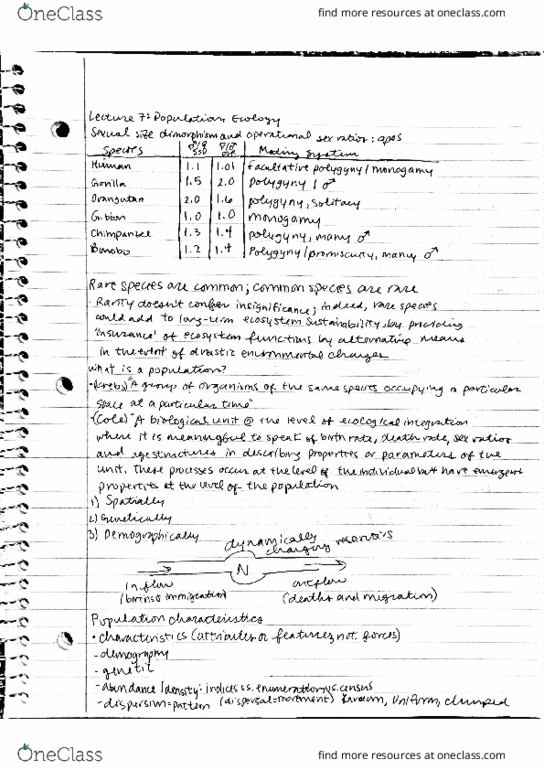 OneClass
find more resources at oneclass.com
Lecture 7: Population Ecology
Sexual size dimorphism and operational sex ratios: apes
Species ♂/♀ SSD ♀/♂ Mating System
Human 1.1 1.01 facultative polygyny/monogamy
Gorilla 1.5 2.0 polygyny 1 ♂
Orangutan 2.0 1.6 polygyny, solitary
Gibbon 1.0 1.0 monogamy
Chimpanzee 1.3 1.4 polygyny, many ♂
Bonobo 1.2 1.4 Polygyny/promiscuity, many ♂
Rare species are common; common species are rare
- Rarity doesn't confer insignificance; indeed, rare species
could add to long-term ecosystem sustainability by providing
'insurance' of ecosystem functions by alternative means
in the event of drastic environmental changes
What is a population?
- (Krebs) "A group of organisms of the same species occupying a particular
space at a particular time"
- (Cole) "A biological unit @ the level of ecological integration
where it is meaningful to speak of birth rate, death rate, sex ratios
and age structures in describing properties or parameters of the
unit. These processes occur at the level of the individual but have emergent
properties at the level of the population
1) Spatially
2) Genetically
3) Demographically
dynamically changing reservoirs
N
inflow outflow
(births & immigration) (deaths and migration)
Population characteristics
• characteristics (attributes or features, not forces)
- demography
- genetic
- abundance/density: indices vs. enumeration vs. census
- dispersion = pattern (dispersal = movement) Random, Uniform, clumped
OneClass
find more resources at oneclass.com